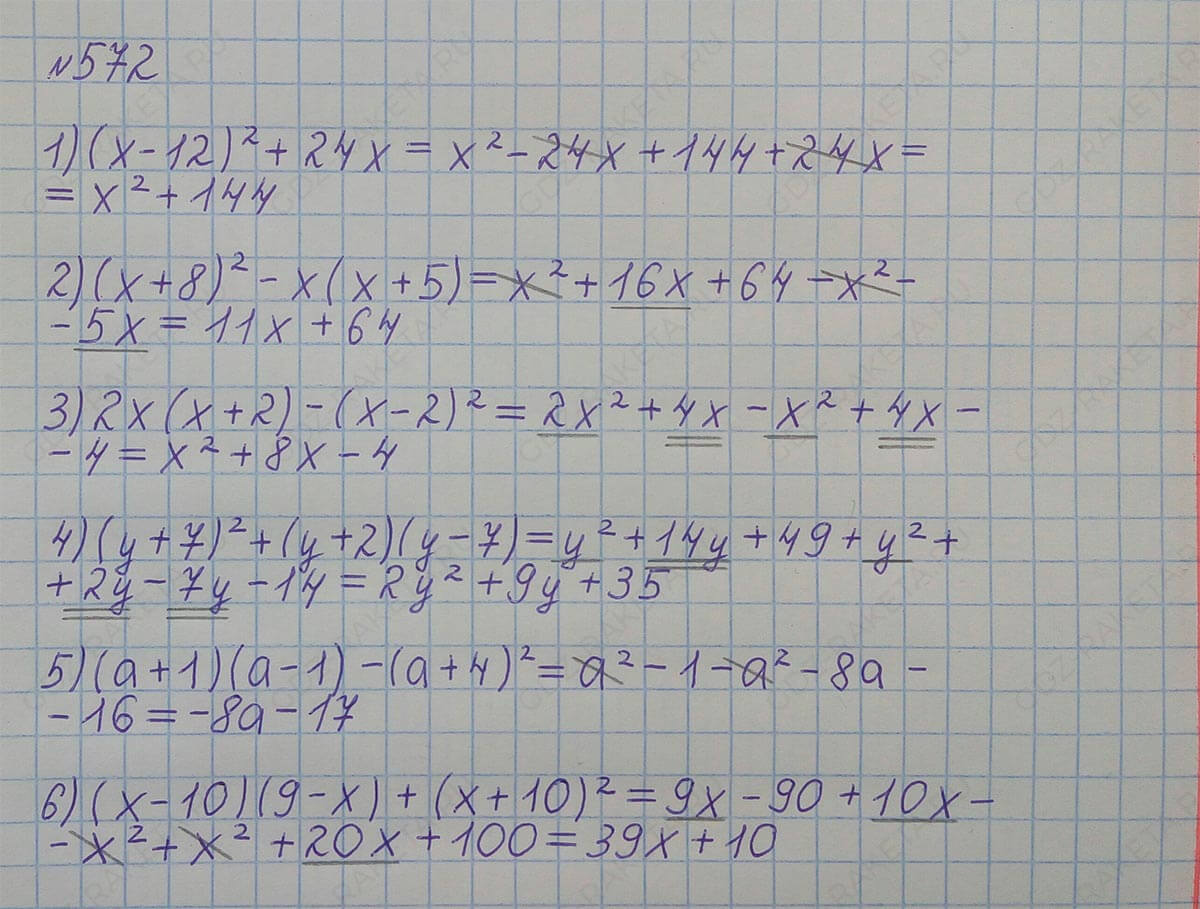 №572
1) (x-12)² + 24x = x² - 24x + 144 + 24x =
= x² + 144
2) (x+8)² - x(x+5) = x² + 16x + 64 - x² -
- 5x = 11x + 64
3) 2x(x+2) - (x-2)² = 2x² + 4x - x² + 4x -
- 4 = x² + 8x - 4
4) (y+7)² + (y+2)(y-7) = y² + 14y + 49 + y² +
+ 2y - 7y - 14 = 2y² + 9y + 35
5) (a+1)(a-1) - (a+4)² = a² - 1 - a² - 8a -
- 16 = -8a - 17
6) (x-10)(9-x) + (x+10)² = 9x - 90 + 10x -
- x² + x² + 20x + 100 = 39x + 10
GDZ-RAKETA.RU